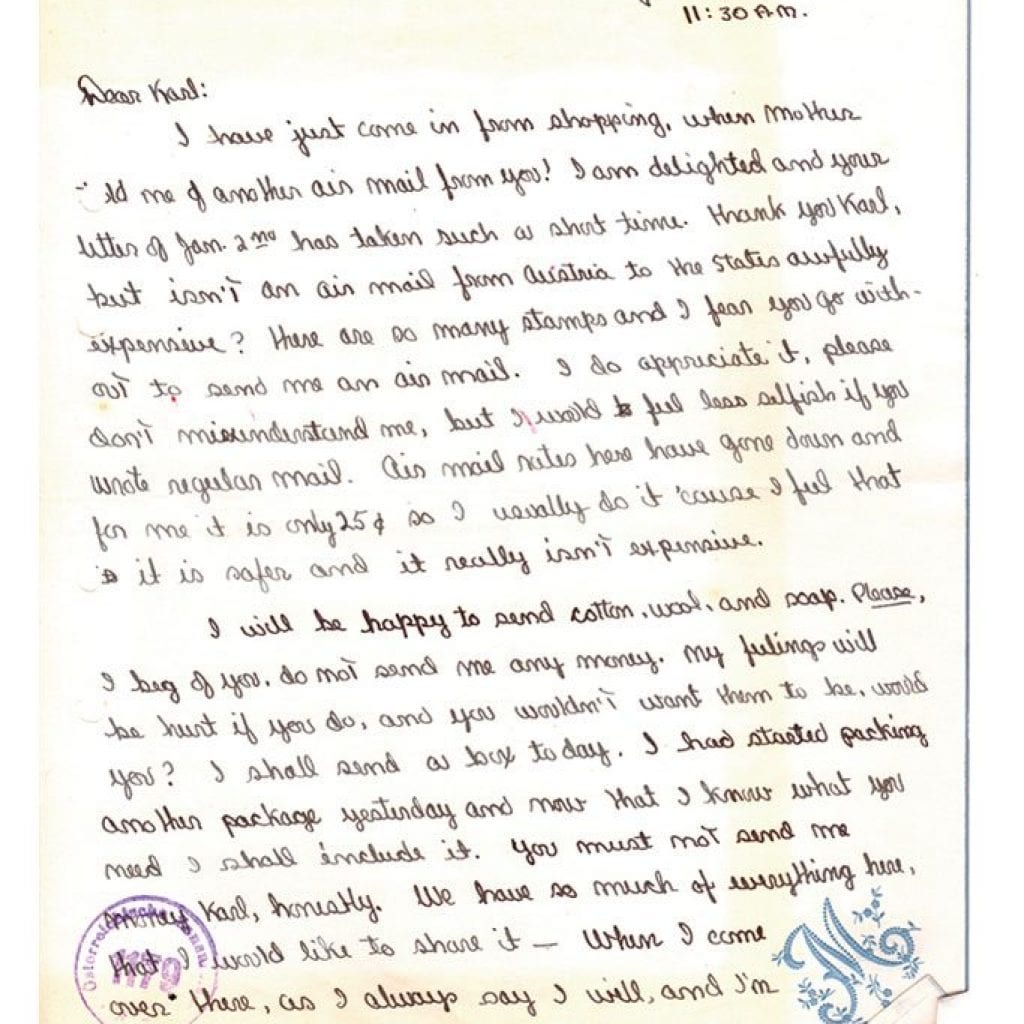 11:30 A.M.
Dear Karl:
I have just come in from shopping, when Mother
'ld me of another air mail from you! I am delighted and your
letter of Jan. 2nd has taken such a short time. Thank you Karl,
but isn't an air mail from Austria to the States awfully
expensive? There are so many stamps and I fear you go with-
out to send me an air mail. I do appreciate it, please
don't misunderstand me, but I would feel less selfish if you
wrote regular mail. Air mail rates here have gone down and
for me it is only 25¢ so I usually do it 'cause I feel that
it is safer and it really isn't expensive.
I will be happy to send cotton, wool, and soap. Please,
I beg of you, do not send me any money. My feelings will
be hurt if you do, and you wouldn't want them to be, would
you? I shall send a box today. I had started packing
another package yesterday and now that I know what you
need I shall include it. You must not send me
money Karl, honestly. We have so much of everything here,
that I would like to share it — When I come
over there, as I always say I will, and I'm
Österreichische
1179
M